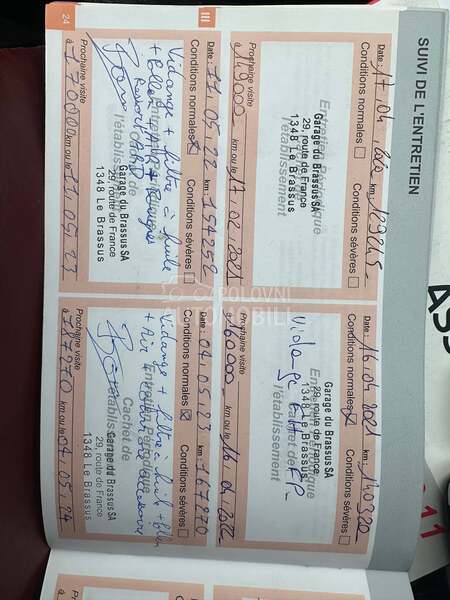 SUIVI DE L'ENTRETIEN
Date : 17.04.2020 km 129245
Conditions normales Conditions sévères
Entretien Périodique
Garage du Brassus SA
29, route de France
1348 Le Brassus
l'établissement
Prochaine visite
à 149000 km ou le 17.02.2021
Date : 16.04.2021 km : 140320
Conditions normales Conditions sévères
Entretien Périodique
Garage du Brassus SA
29, route de France
1348 Le Brassus
Vidange
Cachet de
l'établissement
Prochaine visite
à 160000 km ou le 16.04.2022
III
Date : 11.05.22 km : 154252
Conditions normales Conditions sévères
Vidange + filtre à huile
+
Entretien Périodique
Cachet de
l'établissement
Garage du Brassus SA
29, route de France
1348 Le Brassus
Prochaine visite
à 170000 km ou le 11.05.23
Date : 04.05.23 km : 167270
Conditions normales Conditions sévères
Vidange + filtre à huile + pollen
+ Air
Entretien Périodique
Cachet de
l'établissement
Garage du Brassus SA
29, route de France
1348 Le Brassus
Prochaine visite
à 187270 km ou le 04.05.24
24
POLOVNI
AUTOMOBILI
ASS
11